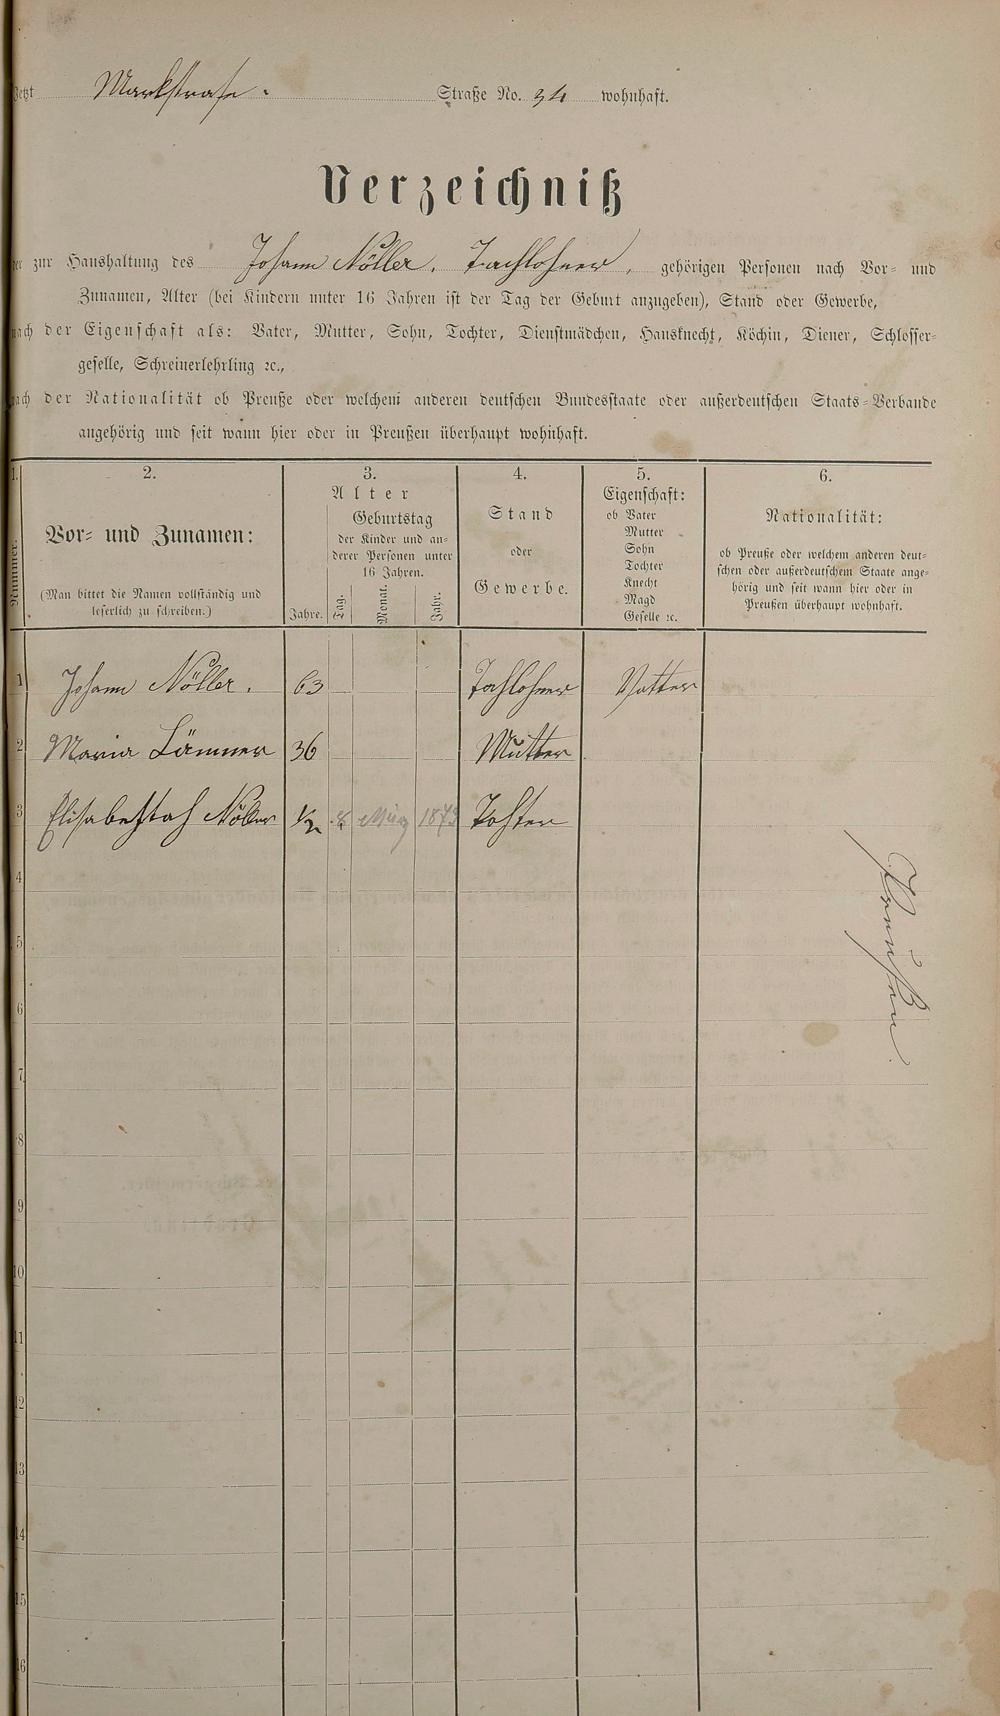 Jetzt Markstrase. Straße No. 34 wohnhaft.
Verzeichniß
der zur Haushaltung des Johann Nöller. Tachlohner, gehörigen Personen nach Vor- und
Zunamen, Alter (bei Kindern unter 16 Jahren ist der Tag der Geburt anzugeben), Stand oder Gewerbe,
nach der Eigenschaft als: Vater, Mutter, Sohn, Tochter, Dienstmädchen, Hausknecht, Köchin, Diener, Schlosser-
geselle, Schreinerlehrling ꝛc.,
nach der Nationalität ob Preuße oder welchem anderen deutschen Bundesstaate oder außerdeutschen Staats-Verbande
angehörig und seit wann hier oder in Preußen überhaupt wohnhaft.
1.
Nummer.
2.
Vor- und Zunamen:
(Man bittet die Namen vollständig und
leserlich zu schreiben.)
3.
Alter
Geburtstag
der Kinder und an-
derer Personen unter
16 Jahren.
Jahre.
Tag.
Monat.
Jahr.
4.
Stand
oder
Gewerbe.
5.
Eigenschaft:
ob Vater
Mutter
Sohn
Tochter
Knecht
Magd
Geselle ꝛc.
6.
Nationalität:
ob Preuße oder welchem anderen deut-
schen oder außerdeutschem Staate ange-
hörig und seit wann hier oder in
Preußen überhaupt wohnhaft.
1 Johann Nöller. 63 Tachlohner Vatter
2 Maria Lämmer 36 Mutter
3 Elisabehtah Nöller ½ 8 März 1873 Tohter
Preußen.
4
5
6
7
8
9
10
11
12
13
14
15
16